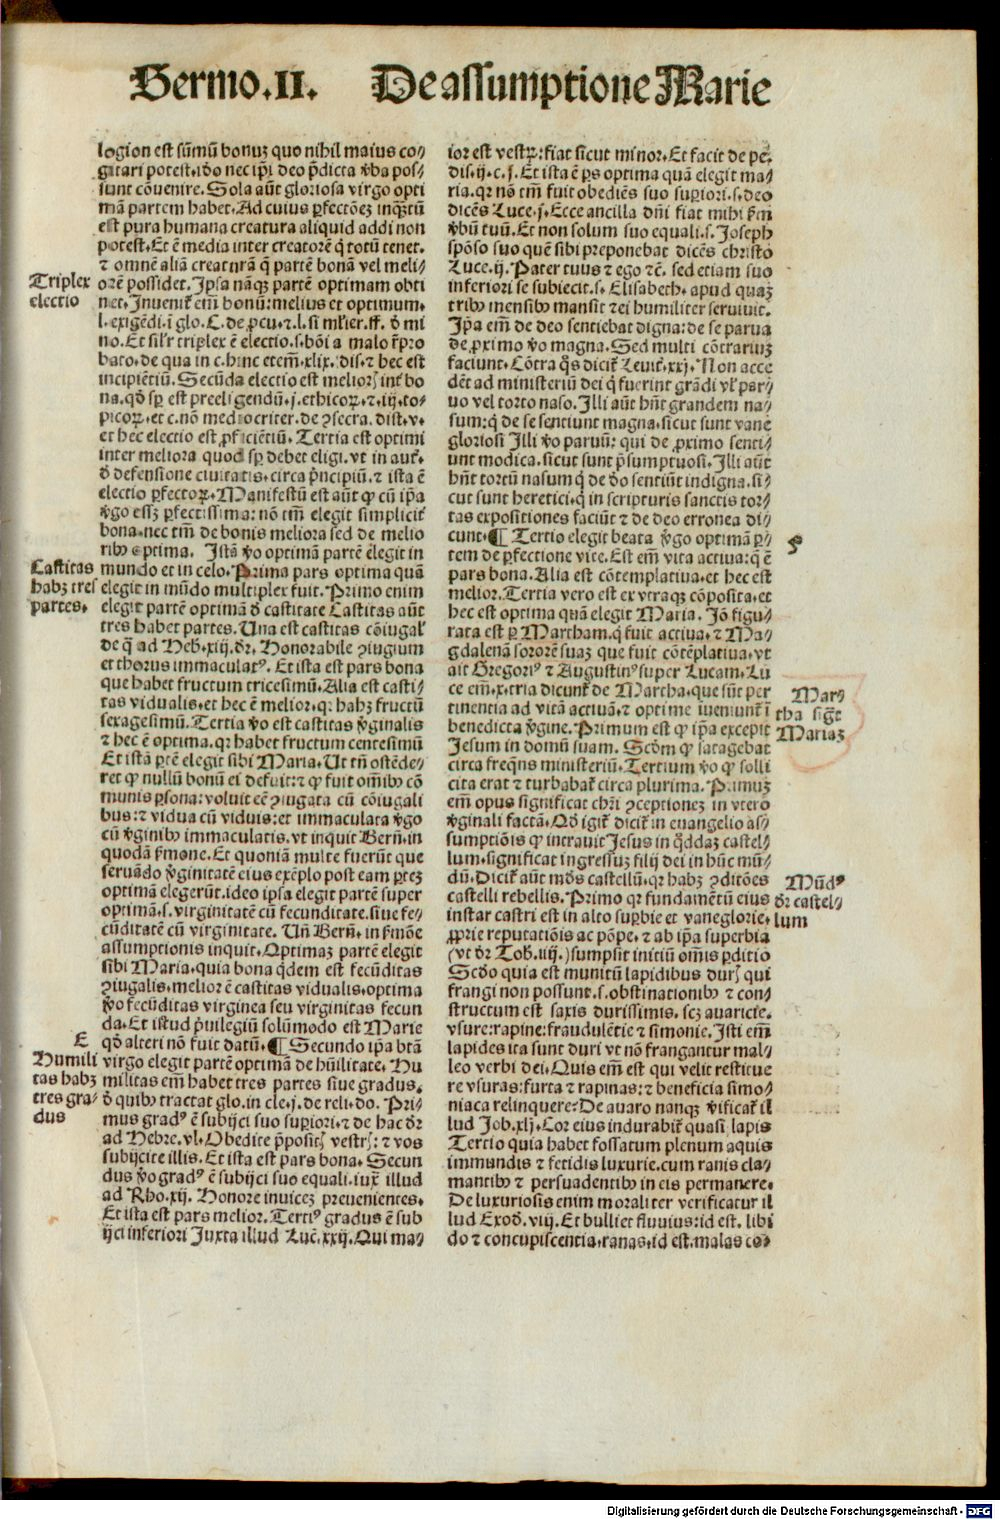 Sermo.II. De assumptione Marie
logion est sũmũ bonuʒ quo nihil maius co⸗
gitari potest.ido nec ip̃i deo p̃dicta v̾ba pos⸗
sunt cõuenire. Sola aũt gloriosa virgo opti
mã partem habet. Ad cuius ꝑfectõeʒ inqʒtũ
est pura humana creatura aliquid addi non
potest. Et ẽ media inter creatorẽ q̃ totũ tenet.
⁊ omnẽ aliã creaturã q̃ partẽ bonã vel meli⸗
orẽ possidet. Ipsa nãqʒ partẽ optimam obti
Triplex
electio
net. Inuenit̃ em̃ bonũ: melius et optimum.
l. exigẽdi. ĩ glo. C. de ꝓcu. ⁊ l. si mł̾ier. ff. đ mi
no. Et sił̾r triplex ẽ electio. s. bõi a malo r̃pro
bato. de qua in c. hinc etem̃. xlix. dis. ⁊ hec est
incipiẽtiũ. Secũda electio est melior̃ int̾ bo
na. qđ sꝑ est preeligendũ. j. ethicoꝝ. ⁊ iij. to⸗
picoꝝ. et c. nõ mediocriter. de ꝯsecra. dist. v.
et hec electio est ꝓficiẽtiũ. Tertia est optimi
inter meliora quod sꝑ debet eligi. vt in aut̃.
đ defensione ciuitatis. circa p̃ncipiũ. ⁊ ista ẽ
electio ꝑfectoꝝ. Manifestũ est aũt ꝙ cũ ip̃a
v̾go essʒ ꝑfectissima: nõ tm̃ elegit simplicit̾
bona. nec tm̃ de bonis meliora sed de melio
ribꝰ optima. Istã v̾o optimã partẽ elegit in
Castitas
habʒ tres
partes.
mundo et in celo. Prima pars optima quã
elegit in mũdo multiplex fuit. Primo enim
elegit partẽ optimã đ castitate Castitas aũt
tres habet partes. Una est castitas cõiugał
de q̃ ad Heb. xiij. đr. Honorabile ꝯiugium
et thorus immaculatꝰ. Et ista est pars bona
que habet fructum tricesimũ. Alia est casti⸗
tas vidualis. et hec ẽ melior. qr habʒ fructũ
sexagesimũ. Tertia v̾o est castitas v̾ginalis
⁊ hec ẽ optima. qr habet fructum centesimũ
Et istã ꝑtẽ elegit sibi Maria. Ut tñ ostẽde⸗
ret ꝙ nullũ bonũ ei defuit: ⁊ ꝙ fuit om̃ibꝰ cõ
munis ꝑsona: voluit eẽ ꝯiugata cũ cõiugali
bus: ⁊ vidua cũ viduis: et immaculata v̾go
cũ v̾ginibꝰ immaculatis. vt inquit Berñ. in
quodã s̾mone. Et quoniã multe fuerũt que
seruãdo v̾ginitatẽ eius exẽplo post eam ꝑteʒ
optimã elegerũt. ideo ipsa elegit partẽ super
optimã. s. virginitatẽ cũ fecunditate. siue fe⸗
cũditatẽ cũ virginitate. Uñ Berñ. in s̾mõe
assumptionis inquit. Optimaʒ partẽ elegit
sibi Maria. quia bona q̃dem est fecũditas
ꝯiugalis. melior ẽ castitas vidualis. optima
v̾o fecũditas virginea seu virginitas fecun
da. Et istud p̃uilegiũ solũmodo est Marie
E
Humili
tas habʒ
tres gra⸗
dus
qđ alteri nõ fuit datũ. ¶ Secundo ip̃a btã
virgo elegit partẽ optimã de hũilitate. Hu
militas em̃ habet tres partes siue gradus.
đ quibꝰ tractat glo. in cle. j. de reli. do. Pri⸗
mus gradꝰ ẽ subijci suo superiori. ⁊ de hac đr
ad Hebre. vl. Obedite p̃posit̾ vestr̾: ⁊ vos
subijcite illis. Et ista est pars bona. Secun
dus v̾o gradꝰ ẽ subijci suo equali. iux̃ illud
ad Rho. xij. Honore inuiceʒ preuenientes.
Et ista est pars melior. Tertiꝰ gradus ẽ sub
ijci inferiori Juxta illud Luc̃. xxij. Qui ma⸗
ior est vestꝝ: fiat sicut minor. Et facit de pẽ.
dis. ij. c. j. Et ista ẽ ꝑs optima quã elegit ma⸗
ria. qr nõ tm̃ fuit obediẽs suo superiori. s. deo
dicẽs Luce. j. Ecce ancilla dñi fiat mihi s̾m
v̾bũ tuũ. Et non solum suo equali. s. Joseph
spõso suo quẽ sibi preponebat dicẽs christo
Luce. ij. Pater tuus ⁊ ego ⁊c̃. sed etiam suo
inferiori se subiecit. s. Elisabeth. apud quaʒ
tribꝰ mensibꝰ mansit ⁊ ei humiliter seruiuit.
Ip̃a em̃ de deo sentiebat digna: de se parua
de ꝓximo v̾o magna. Sed multi cõtrariuʒ
faciunt. Cõtra q̃s dicit̃ Leuit̃. xxj. Non acce
dẽt ad ministeriũ dei q̃ fuerint grãdi vł par⸗
uo vel torto naso. Illi aũt hñt grandem na⸗
sum: q̃ de se sentiunt magna. sicut sunt vane
gloriosi Illi v̾o paruũ: qui de ꝓximo senti⸗
unt modica. sicut sunt p̃sumptuosi. Illi aũt
hñt tortũ nasum q̃ de đo sentiũt indigna. si⸗
cut sunt heretici. q̃ in scripturis sanctis tor⸗
tas expositiones faciũt ⁊ de deo erronea di⸗
cunt. ¶ Tertio elegit beata v̾go optimã ꝑ⸗
F
tem de ꝑfectione vite. Est em̃ vita actiua: q̃ ẽ
pars bona. Alia est cõtemplatiua. et hec est
melior. Tertia vero est ex vtraqʒ cõposita. et
hec est optima quã elegit Maria. Iõ figu⸗
rata est ꝑ Martham. q̃ fuit actiua. ⁊ Ma⸗
gdalenã sororẽ suaʒ que fuit cõtẽplatiua. vt
ait Gregoriꝰ ⁊ Augustinꝰ super Lucam. Lu
ce em̃. x. tria dicunt̃ de Martha. que sũt per
Mar⸗
tha sig̃t
Mariaʒ
tinentia ad vitã actiuã. ⁊ optime iueniunt̃ ĩ
benedicta v̾gine. Primum est ꝙ ip̃a excepit
Jesum in domũ suam. Scđm ꝙ satagebat
circa freq̃ns ministeriũ. Tertium v̾o ꝙ solli
cita erat ⁊ turbabat̃ circa plurima. Primuʒ
em̃ opus significat chr̃i ꝯceptioneʒ in vtero
v̾ginali factã. Qđ igit̃ dicit̃ in euangelio as⸗
sumptiõis ꝙ intrauit Jesus in q̃ddaʒ castel⸗
lum. significat ingressuʒ filij dei in hũc mũ⸗
Mũdꝰ
đr castel⸗
lum
dũ. Dicit̃ aũt mũdꝰ castellũ. qr habʒ ꝯditões
castelli rebellis. Primo qr fundamẽtũ eius
instar castri est in alto superbie et vaneglorie.
ꝓprie reputatiõis ac põpe. ⁊ ab ip̃a superbia
(vt đr Tob. iiij.) sumpsit initiũ om̃is ꝑditio
Scđo quia est munitũ lapidibus dur̾ qui
frangi non possunt. s. obstinationibꝰ ⁊ con⸗
structum est saxis durissimis. scʒ auaricie.
vsure: rapine: fraudulẽtie ⁊ simonie. Isti em̃
lapides ita sunt duri vt nõ frangantur mal⸗
leo verbi dei. Quis em̃ est qui velit restitue
re vsuras: furta ⁊ rapinas: ⁊ beneficia simo⸗
niaca relinquere? De auaro nanqʒ v̾ificat̃ il
lud Job. xlj. Cor eius indurabit̃ quasi lapis
Tertio quia habet fossatum plenum aquis
immundis ⁊ fetidis luxurie. cum ranis cla⸗
mantibꝰ ⁊ persuadentibꝰ in eis permanere.
De luxuriosis enim moraliter verificatur il
lud Exođ. viij. Et bulliet fluuius: id est. libi
do ⁊ concupiscentia. ranas. id est. malas co⸗
Digitalisierung gefördert durch die Deutsche Forschungsgemeinschaft - DFG